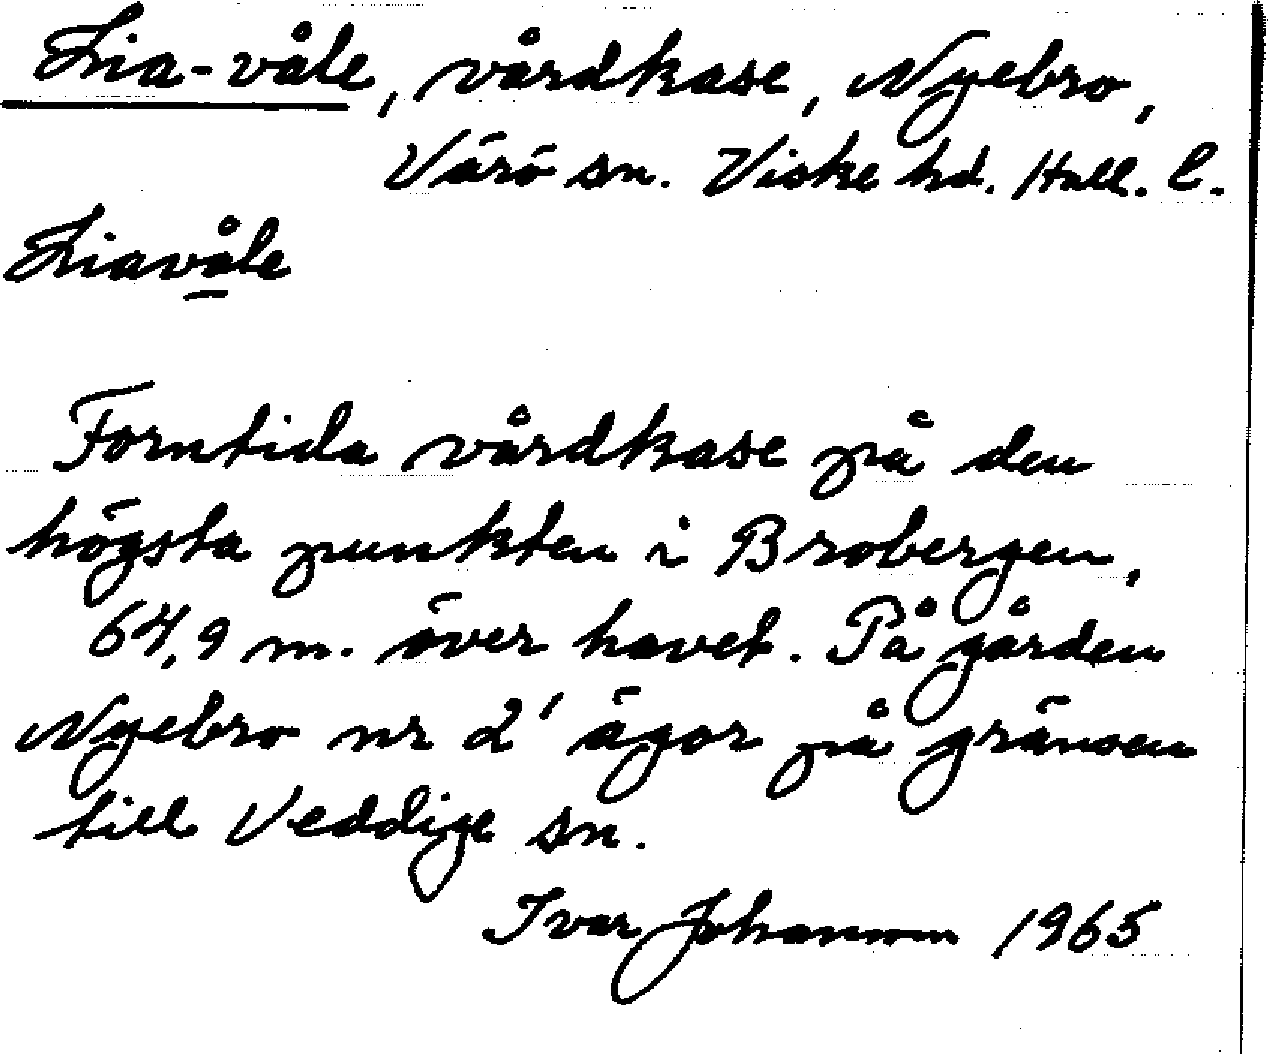 Lia-våle, vårdkase, Nyebro,
Värö sn. Viske hd. Hall. l.
Liavåle
Forntida vårdkase på den
högsta punkten i Brobergen,
64,9 m. över havet. På gården
Nyebro nr 2' ägor på gränsen
till Veddige sn.
Ivar Johansson 1965